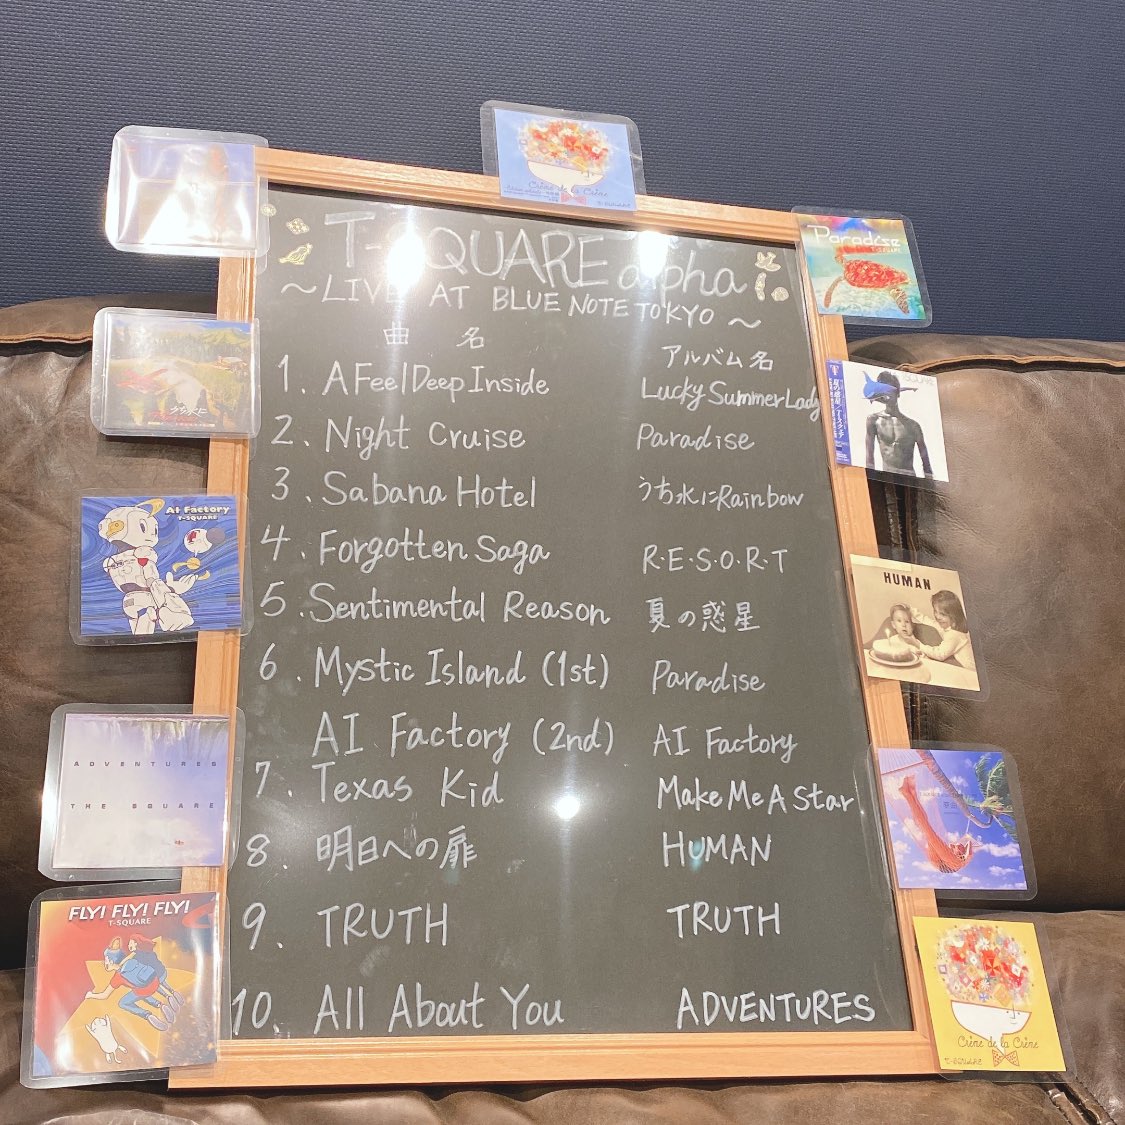 T-SQUARE alpha
～LIVE AT BLUE NOTE TOKYO～
曲 名 アルバム名
1. A Feel Deep Inside Lucky Summer Lady
2. Night Cruise Paradise
3. Sabana Hotel うち水にRainbow
4. Forgotten Saga R・E・S・O・R・T
5. Sentimental Reason 夏の惑星
6. Mystic Island (1st) Paradise
AI Factory (2nd) AI Factory
7. Texas Kid Make Me A Star
8. 明日への扉 HUMAN
9. TRUTH TRUTH
10 All About You ADVENTURES
Crème de la Crème
T-SQUARE
Paradise
T-SQUARE
うち水に
AI Factory
T-SQUARE
HUMAN
ADVENTURES
THE SQUARE
FLY! FLY! FLY!
T-SQUARE
Crème de la Crème
T-SQUARE